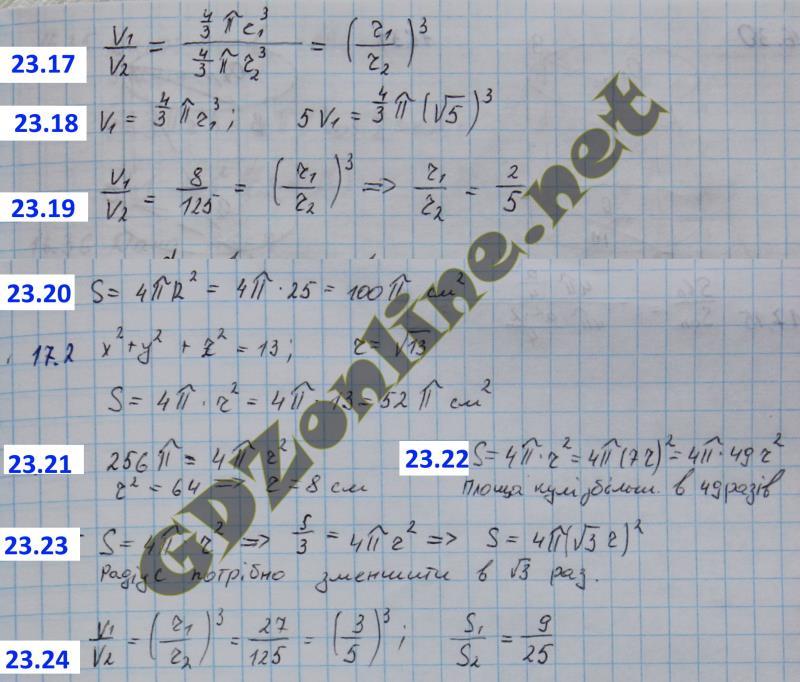 23.17 V₁/V₂ = (4/3 π r₁³)/(4/3 π r₂³) = (r₁/r₂)³
23.18 V₁ = 4/3 π r₁³; 5V₁ = 4/3 π (√5)³
23.19 V₁/V₂ = 8/125 = (r₁/r₂)³ => r₁/r₂ = 2/5
23.20 S = 4πR² = 4π·25 = 100π см²
17.2 x² + y² + z² = 13; r = √13
S = 4π·r² = 4π·13 = 52π см²
23.21 256π = 4π r²
r² = 64 => r = 8 см
23.22 S = 4π·r² = 4π(7r)² = 4π·49r²
Площа кулі збільш. в 49 разів
23.23 S = 4π r² => S/3 = 4πr² => S = 4π(√3 r)²
Радіус потрібно зменшити в √3 раз.
23.24 V₁/V₂ = (r₁/r₂)³ = 27/125 = (3/5)³; S₁/S₂ = 9/25
GDZonline.net